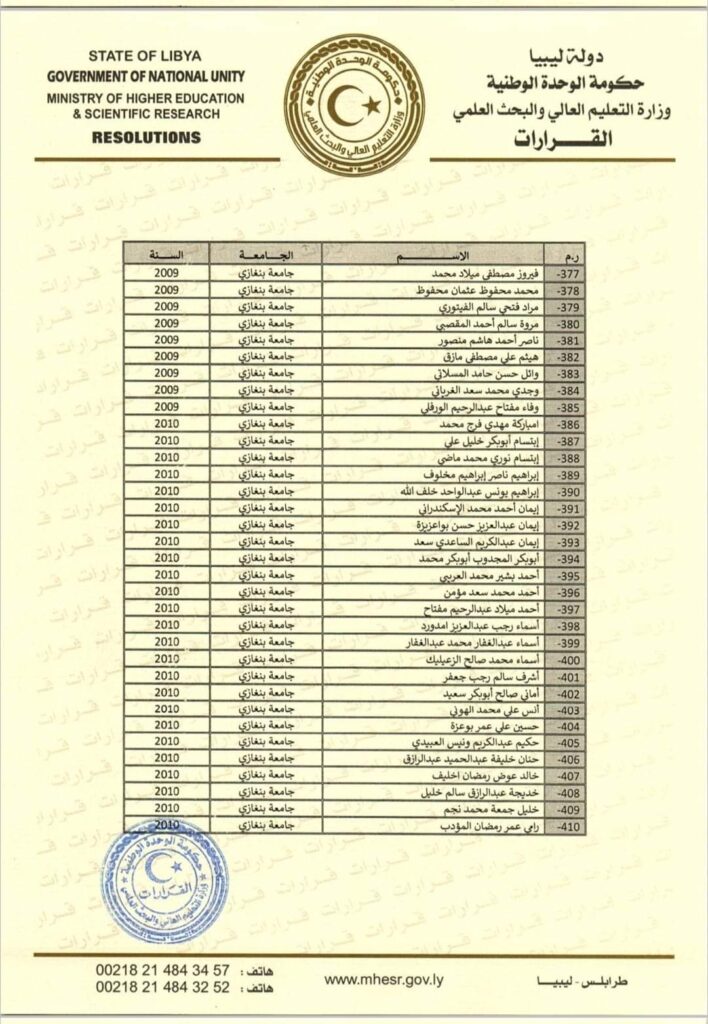 STATE OF LIBYA
GOVERNMENT OF NATIONAL UNITY
MINISTRY OF HIGHER EDUCATION
& SCIENTIFIC RESEARCH
RESOLUTIONS
دولة ليبيا
حكومة الوحدة الوطنية
وزارة التعليم العالي والبحث العلمي
القـــرارات
حكومة الوحدة الوطنية
وزارة التعليم العالي والبحث العلمي
ر.م الاســـم الجـامعـة السـنة
377- فيروز مصطفى ميلاد محمد جامعة بنغازي 2009
378- محمد محفوظ عثمان محفوظ جامعة بنغازي 2009
379- مراد فتحي سالم الفيتوري جامعة بنغازي 2009
380- مروة سالم أحمد المقصبي جامعة بنغازي 2009
381- ناصر أحمد هاشم منصور جامعة بنغازي 2009
382- هيثم علي مصطفى مازق جامعة بنغازي 2009
383- وائل حسن حامد المسلاتي جامعة بنغازي 2009
384- وجدي محمد سعد الغرياني جامعة بنغازي 2009
385- وفاء مفتاح عبدالرحيم الورفلي جامعة بنغازي 2009
386- امباركة مهدي فرج محمد جامعة بنغازي 2010
387- إبتسام أبوبكر خليل علي جامعة بنغازي 2010
388- إبتسام نوري محمد ماضي جامعة بنغازي 2010
389- إبراهيم ناصر إبراهيم مخلوف جامعة بنغازي 2010
390- إبراهيم يونس عبدالواحد خلف الله جامعة بنغازي 2010
391- إيمان أحمد محمد الإسكندراني جامعة بنغازي 2010
392- إيمان عبدالعزيز حسن بواعزيزة جامعة بنغازي 2010
393- إيمان عبدالكريم الساعدي سعد جامعة بنغازي 2010
394- أبوبكر المجدوب أبوبكر محمد جامعة بنغازي 2010
395- أحمد بشير محمد العريبي جامعة بنغازي 2010
396- أحمد محمد سعد مؤمن جامعة بنغازي 2010
397- أحمد ميلاد عبدالرحيم مفتاح جامعة بنغازي 2010
398- أسماء رجب عبدالعزيز امدورد جامعة بنغازي 2010
399- أسماء عبدالغفار محمد عبدالغفار جامعة بنغازي 2010
400- أسماء محمد صالح الزعيليك جامعة بنغازي 2010
401- أشرف سالم رجب جعفر جامعة بنغازي 2010
402- أماني صالح أبوبكر سعيد جامعة بنغازي 2010
403- أنس علي محمد الهوني جامعة بنغازي 2010
404- حسين علي عمر بوعزة جامعة بنغازي 2010
405- حكيم عبدالكريم ونيس العبيدي جامعة بنغازي 2010
406- حنان خليفة عبدالحميد عبدالرازق جامعة بنغازي 2010
407- خالد عوض رمضان اخليف جامعة بنغازي 2010
408- خديجة عبدالرازق سالم خليل جامعة بنغازي 2010
409- خليل جمعة محمد نجم جامعة بنغازي 2010
410- رامي عمر رمضان المؤدب جامعة بنغازي 2010
حكومة الوحدة الوطنية
القرارات
وزارة التعليم العالي والبحث العلمي
طرابلس - ليبيـا
www.mhesr.gov.ly
هاتف : 00218 21 484 34 57
هاتف : 00218 21 484 32 52